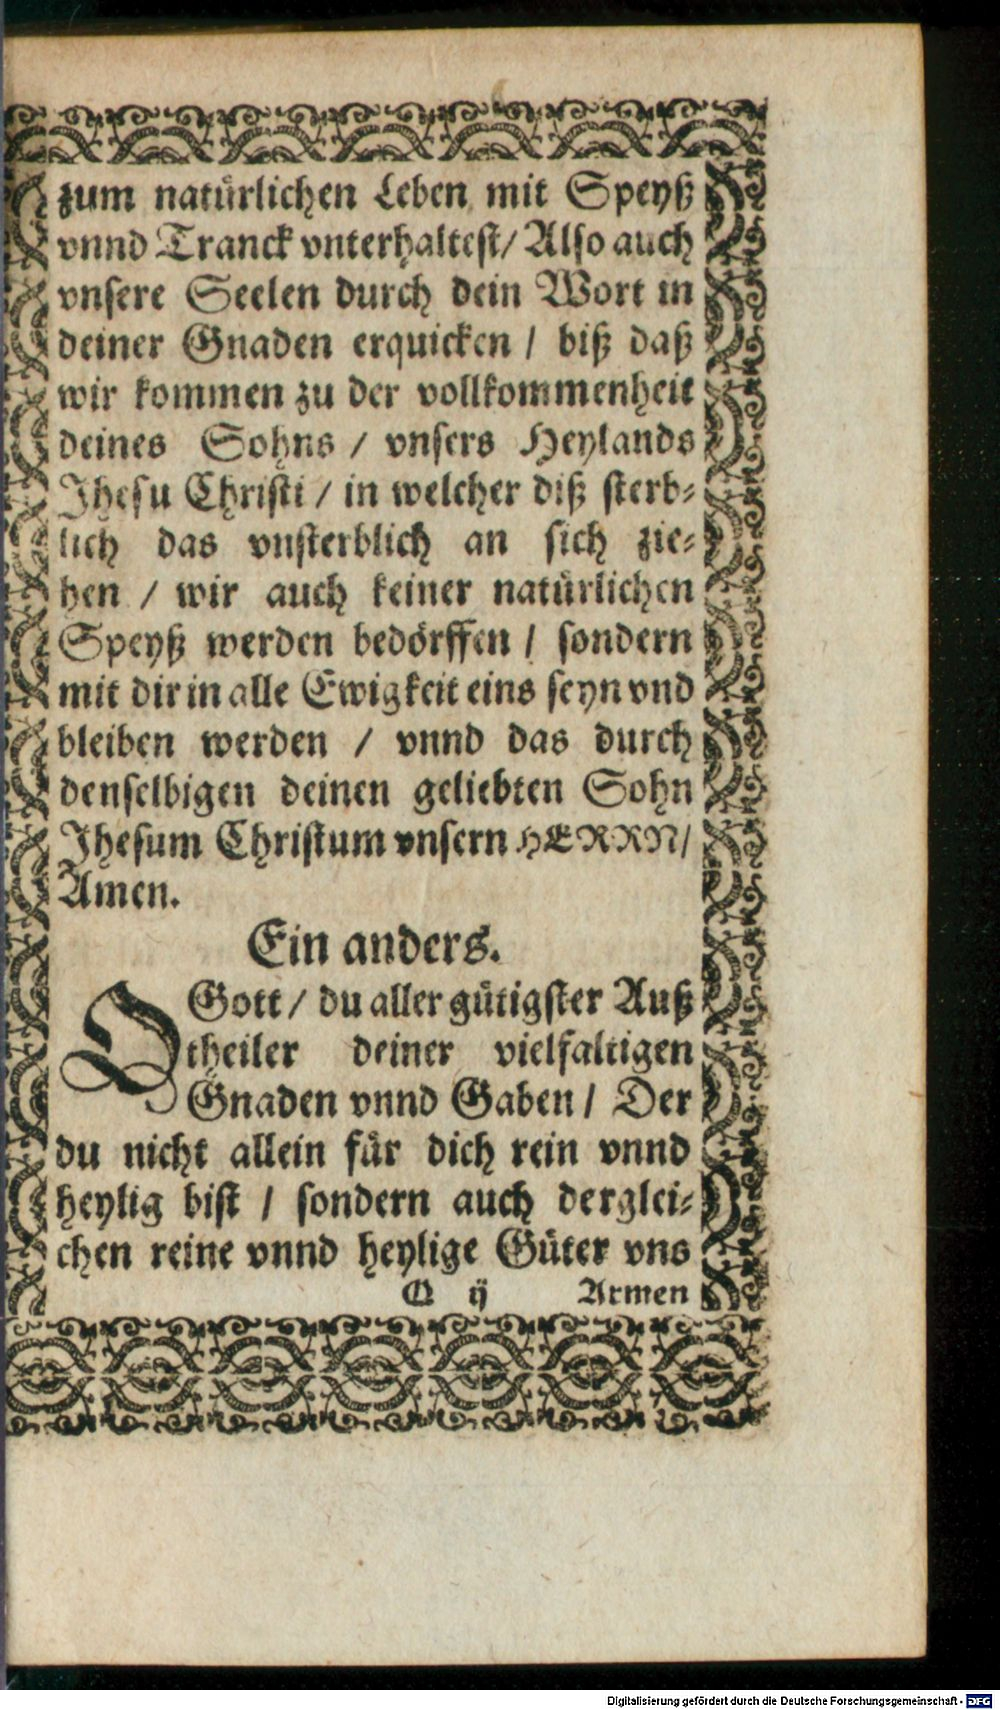 zum natürlichen Leben mit Speyß
vnnd Tranck vnterhaltest/ Also auch
vnsere Seelen durch dein Wort in
deiner Gnaden erquicken / biß daß
wir kommen zu der vollkommenheit
deines Sohns / vnsers Heylands
Jhesu Christi / in welcher diß sterb-
lich das vnsterblich an sich zie-
hen / wir auch keiner natürlichen
Speyß werden bedörffen / sondern
mit dir in alle Ewigkeit eins seyn vnd
bleiben werden / vnnd das durch
denselbigen deinen geliebten Sohn
Jhesum Christum vnsern HERRN/
Amen.
Ein anders.
O Gott / du aller gütigster Auß
theiler deiner vielfaltigen
Gnaden vnnd Gaben / Der
du nicht allein für dich rein vnnd
heylig bist / sondern auch derglei-
chen reine vnnd heylige Güter vns
Q ij Armen
Digitalisierung gefördert durch die Deutsche Forschungsgemeinschaft - DFG